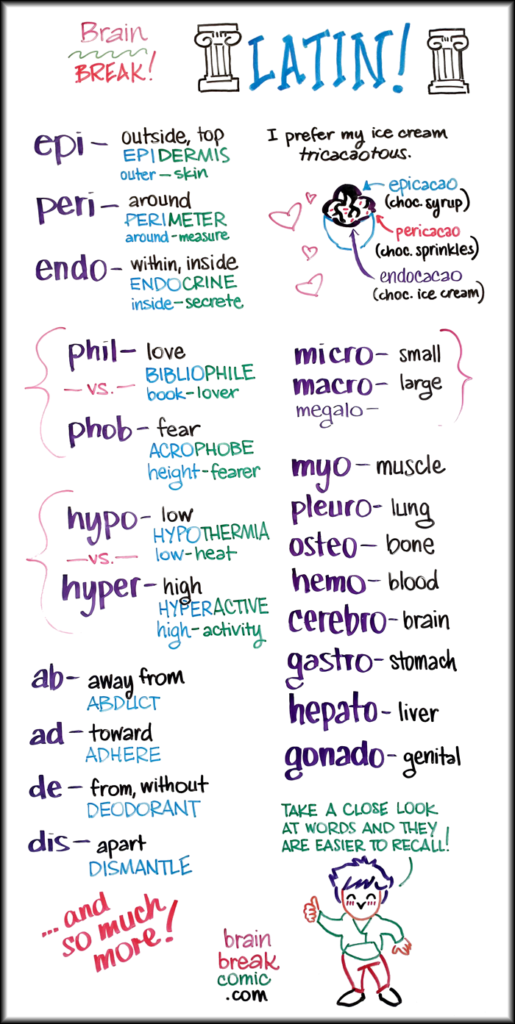 Brain
BREAK!
LATIN!
epi – outside, top
EPIDERMIS
outer – skin
peri – around
PERIMETER
around-measure
endo – within, inside
ENDOCRINE
inside-secrete
I prefer my ice cream
tricacaotous.
epicacao
(choc. syrup)
pericacao
(choc. sprinkles)
endocacao
(choc. ice cream)
phil – love
BIBLIOPHILE
book-lover
— vs. —
phob – fear
ACROPHOBE
height-fearer
micro – small
macro – large
megalo –
hypo – low
HYPOTHERMIA
low-heat
— vs. —
hyper – high
HYPERACTIVE
high-activity
myo – muscle
pleuro – lung
osteo – bone
hemo – blood
cerebro – brain
gastro – stomach
hepato – liver
gonado – genital
ab – away from
ABDUCT
ad – toward
ADHERE
de – from, without
DEODORANT
dis – apart
DISMANTLE
TAKE A CLOSE LOOK
AT WORDS AND THEY
ARE EASIER TO RECALL!
... and
so much
more!
brain
break
comic
.com